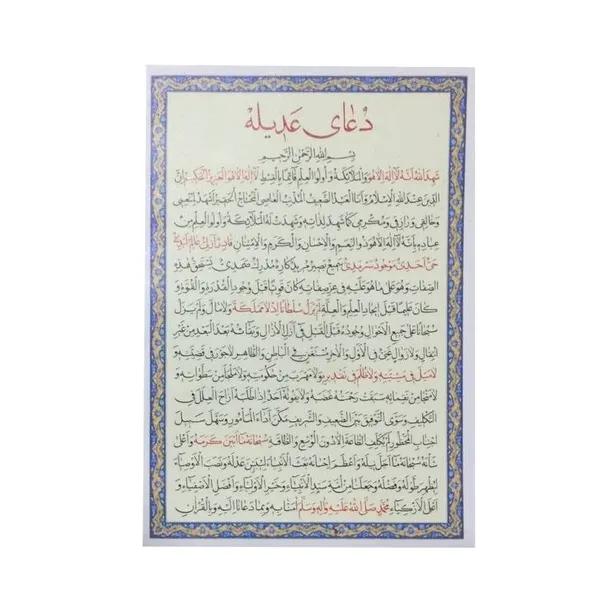 دُعای عَدیله
بِسْمِ اللهِ الرَّحْمٰنِ الرَّحیمِ
شَهِدَ اللهُ اَنَّهُ لا اِلهَ اِلاّ هُوَ وَالْمَلائِکَةُ وَ اُولُوا الْعِلْمِ قائِمًا بِالْقِسْطِ لا اِلهَ اِلاّ هُوَ الْعَزیزُ الْحَکیمُ اِنَّ
الدّینَ عِنْدَ اللهِ الْاِسْلامُ وَ اَنَا الْعَبْدُ الضَّعیفُ الْمُذْنِبُ الْعاصِی الْمُحْتاجُ الْحَقیرُ اَشْهَدُ لِمُنْعِمی
وَ خالِقی وَ رازِقی وَ مُکْرِمی کَما شَهِدَ لِذاتِهِ وَ شَهِدَتْ لَهُ الْمَلائِکَةُ وَ اُولُوا الْعِلْمِ مِنْ
عِبادِهِ بِاَنَّهُ لا اِلهَ اِلاّ هُوَ ذُو النِّعَمِ وَ الْاِحْسانِ وَ الْکَرَمِ وَ الْاِمْتِنانِ قادِرٌ اَزَلِیٌّ عالِمٌ اَبَدِیٌّ
حَیٌّ اَحَدِیٌّ مَوْجُودٌ سَرْمَدِیٌّ سَمیعٌ بَصیرٌ مُریدٌ کارِهٌ مُدْرِكٌ صَمَدِیٌّ یَسْتَحِقُّ هذِهِ
الصِّفاتِ وَ هُوَ عَلی ما هُوَ عَلَیْهِ فی عِزِّ صِفاتِهِ کانَ قَوِیًّا قَبْلَ وُجُودِ الْقُدْرَةِ وَ الْقُوَّةِ وَ
کانَ عَلیمًا قَبْلَ ایجادِ الْعِلْمِ وَ الْعِلَّةِ لَمْ یَزَلْ سُلْطانًا اِذْ لا مَمْلَکَةَ وَ لا مالَ وَ لَمْ یَزَلْ
سُبْحانًا عَلی جَمیعِ الْاَحْوالِ وُجُودُهُ قَبْلَ الْقَبْلِ فی اَزَلِ الْاٰزالِ وَ بَقائُهُ بَعْدَ الْبَعْدِ مِنْ غَیْرِ
انْتِقالٍ وَ لا زَوالٍ غَنِیٌّ فِی الْاَوَّلِ وَ الْاٰخِرِ مُسْتَغْنٍ فِی الْباطِنِ وَ الظّاهِرِ لا جَوْرَ فی قَضِیَّتِهِ وَ
لا مَیْلَ فی مَشِیَّتِهِ وَ لا ظُلْمَ فی تَقْدیرِهِ وَ لا مَهْرَبَ مِنْ حُکُومَتِهِ وَ لا مَلْجَأَ مِنْ سَطَواتِهِ وَ
لا مَنْجا مِنْ نَقِماتِهِ سَبَقَتْ رَحْمَتُهُ غَضَبَهُ وَ لا یَفُوتُهُ اَحَدٌ اِذا طَلَبَهُ اَزاحَ الْعِلَلَ فِی
التَّکْلیفِ وَ سَوَّی التَّوْفیقَ بَیْنَ الضَّعیفِ وَ الشَّریفِ مَکَّنَ اَداءَ الْمَأْمُورِ وَ سَهَّلَ سَبیلَ
اجْتِنابِ الْمَحْظُورِ لَمْ یُکَلِّفِ الطّاعَةَ اِلاّ دُونَ الْوُسْعِ وَ الطّاقَةِ سُبْحانَهُ ما اَبْیَنَ کَرَمَهُ وَ اَعْلی
شَأْنَهُ سُبْحانَهُ ما اَجَلَّ نَیْلَهُ وَ اَعْظَمَ اِحْسانَهُ بَعَثَ الْاَنْبِیاءَ لِیُبَیِّنَ عَدْلَهُ وَ نَصَبَ الْاَوْصِیاءَ
لِیُظْهِرَ طَوْلَهُ وَ فَضْلَهُ وَ جَعَلَنا مِنْ اُمَّةِ سَیِّدِ الْاَنْبِیاءِ وَ خَیْرِ الْاَوْلِیاءِ وَ اَفْضَلِ الْاَصْفِیاءِ وَ
اَعْلَی الْاَزْکِیاءِ مُحَمَّدٍ صَلَّی اللهُ عَلَیْهِ وَ الِهِ وَسَلَّمَ اٰمَنّا بِهِ وَ بِما دَعانا اِلَیْهِ وَ بِالْقُرْاٰنِ